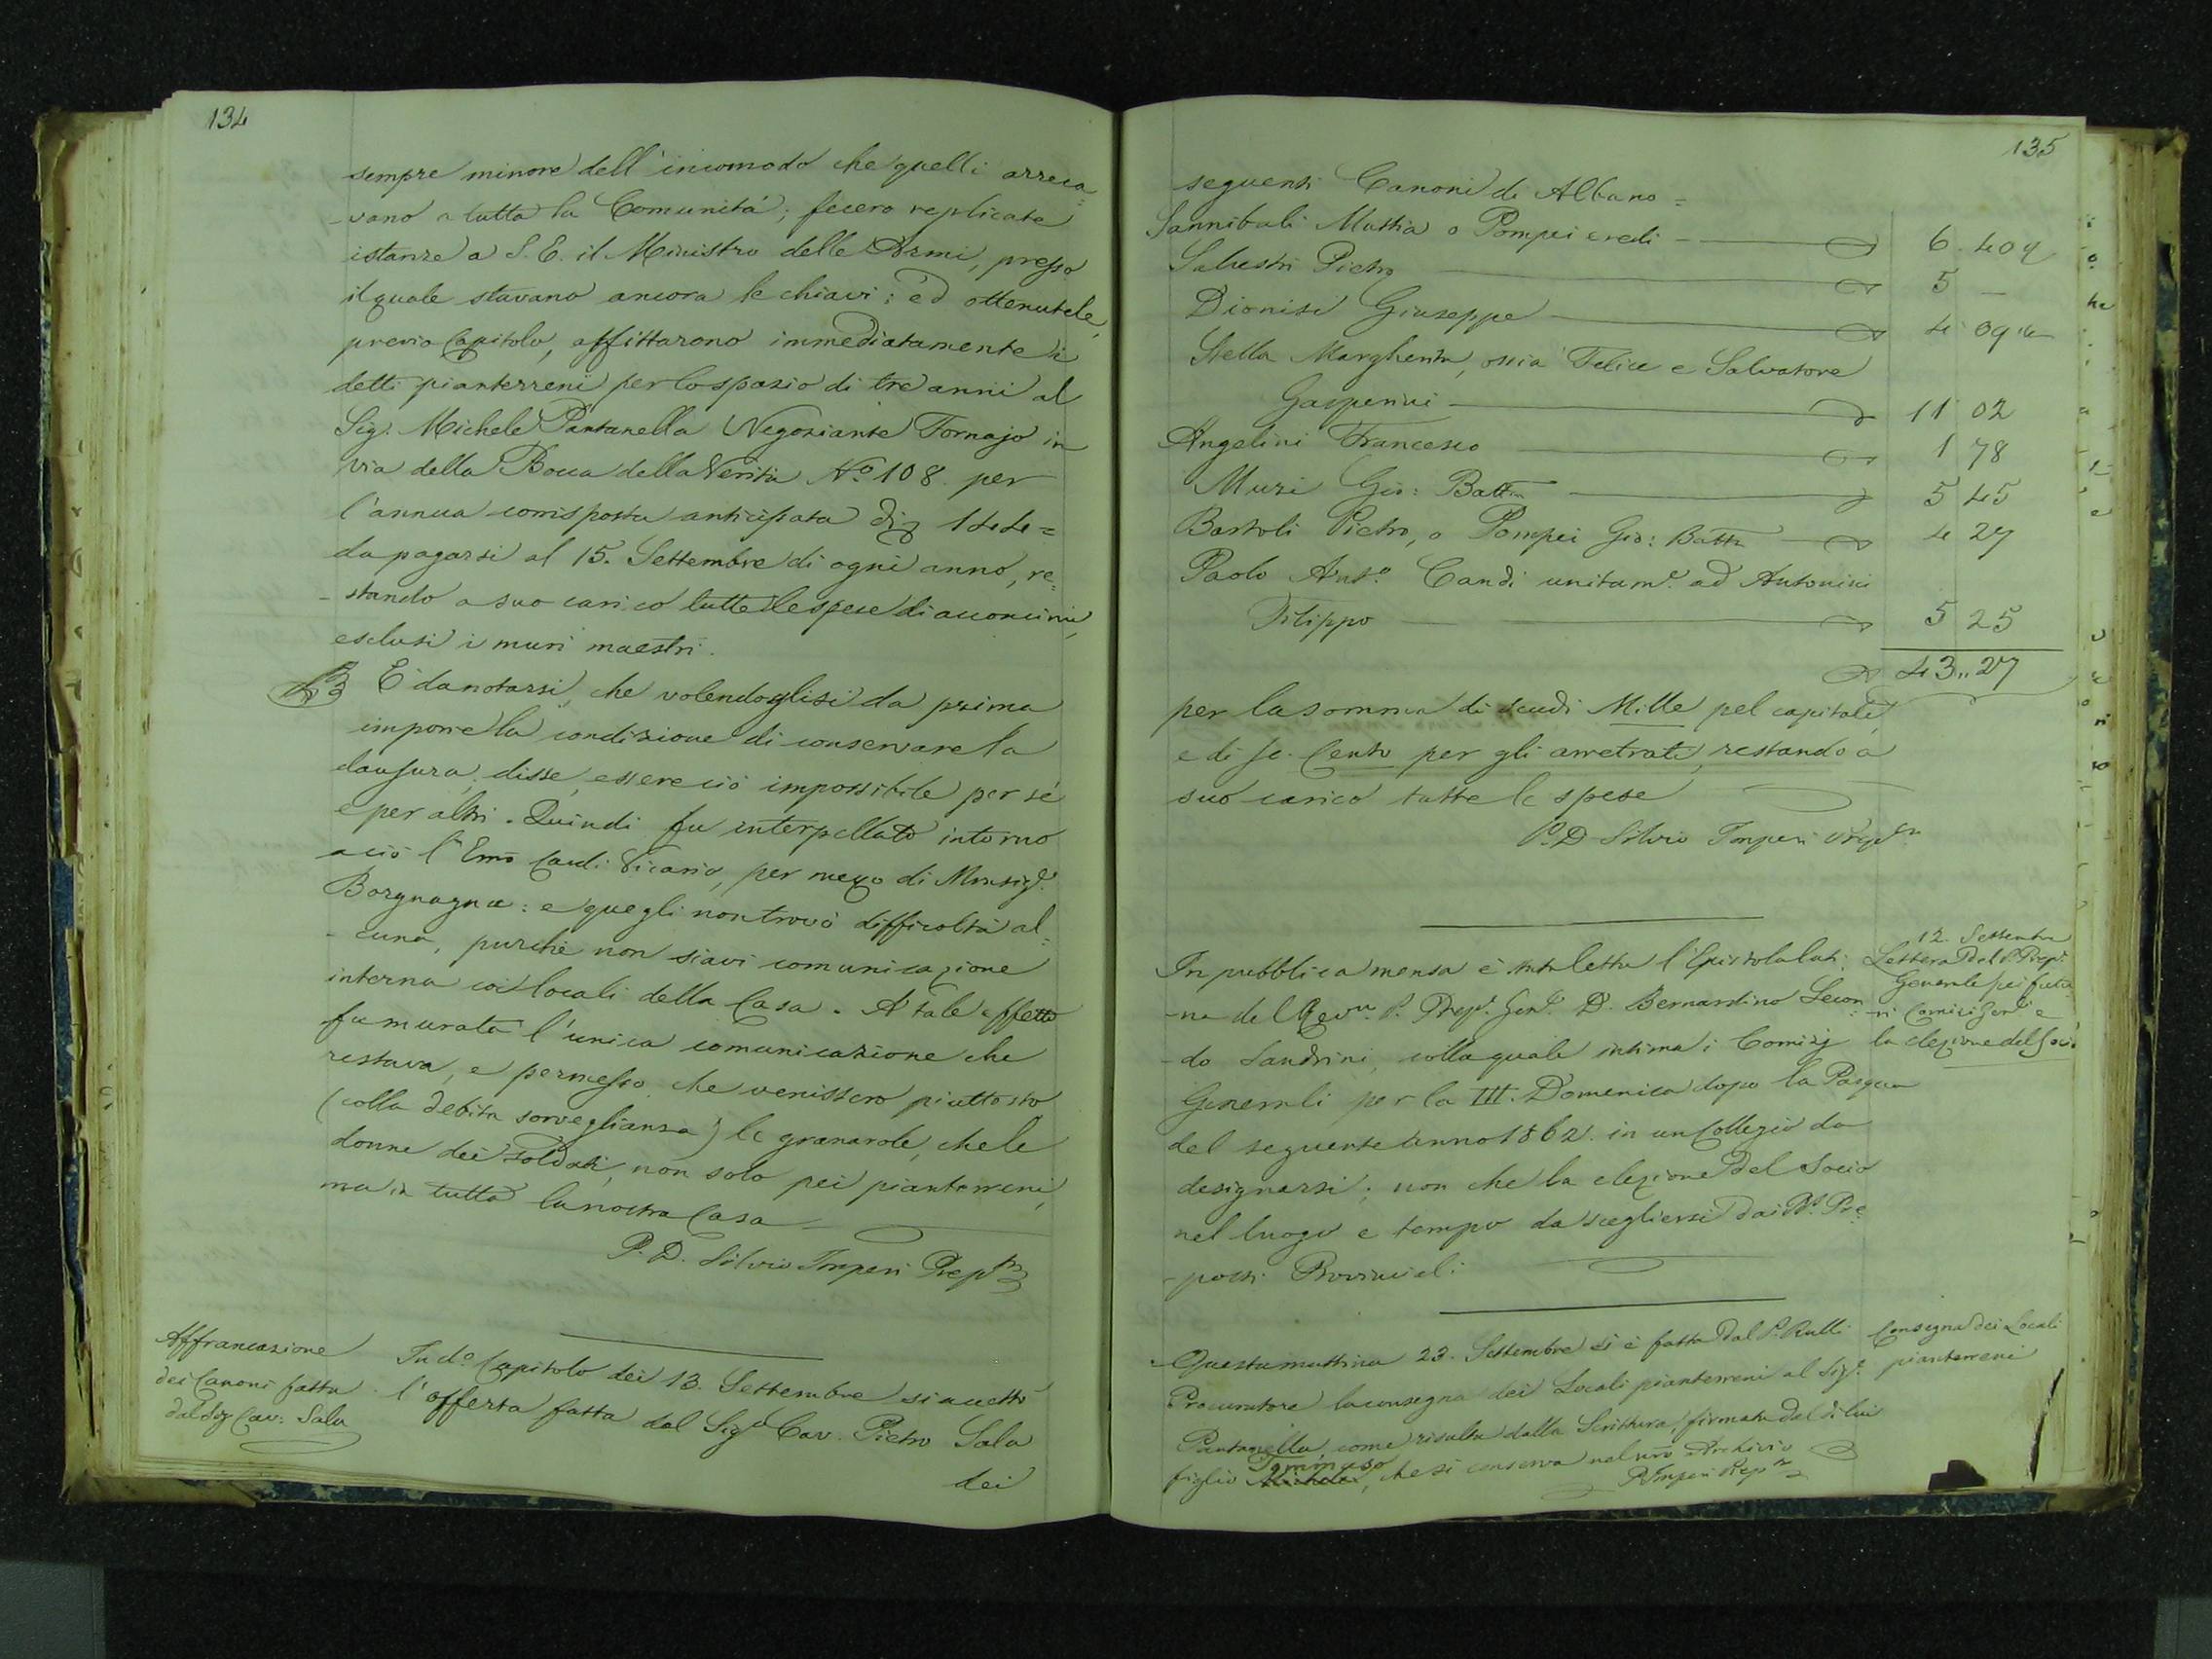 134
sempre minore dell'incomodo che quelli arreca=
-vano a tutta la Comunità; fecero replicate
istanze a S. E. il Ministro delle Armi, presso
il quale stavano ancora le chiavi: ed ottenutele,
previo Capitolo, affittarono immediatamente i
detti pianterreni per lo spazio di tre anni al
Sig. Michele Pantanella Negoziante Fornajo in
via della Bocca della Verità No. 108. per
l'annua corrisposta anticipata di 144=
da pagarsi al 15. Settembre di ogni anno, re=
-stando a suo carico tutte le spese di acconcimi,
esclusi i muri maestri.
È da notarsi, che volendoglisi da prima
imporre la condizione di conservare la
clausura, disse, essere ciò impossibile per sé
e per altri. Quindi fu interpellato intorno
a ciò l'Emo Card: Vicario, per mezzo di Monsigr.
Borgnagna: e quegli non trovò difficoltà al=
-cuna, purchè non siavi comunicazione
interna coi locali della Casa. A tale effetto
fu murata l'unica comunicazione che
restava, e permesso che venissero piuttosto
(colla debita sorveglianza) le granarole, che le
donne dei soldati, non solo pei pianterreni,
ma in tutta la nostra Casa
P. D. Silvio Imperi Prepto
Affrancazione
dei Canoni fatta
dal Sig. Cav: Sala
In do. Capitolo dei 13. Settembre si accettò
l'offerta fatta dal Sigr. Cav. Pietro Sala
dei
135
seguenti Canoni di Albano=
Sannibali Mattia o Pompei eredi 6 409
Salustri Pietro 5 —
Dionisi Giuseppe 4 09
Stella Margherita, ossia Felice e Salvatore
Gasperini 11 02
Angelini Francesco 1 78
Muzi Gio: Batta 5 45
Bartoli Pietro, o Pompei Gio: Batta 4 27
Paolo Anto. Candi unitame. ad Antonini
Filippo 5 25
43.. 27
per la somma di scudi Mille pel capitale,
e di sc. Cento per gli arretrati, restando a
suo carico tutte le spese
P. D. Silvio Imperi
12. Settembre
Lettera del P. Prepo.
Generale pei futu-
-ri Comizi Genli. e
la elezione del Socio
In pubblica mensa è stata letta l'Epistola lati-
-na del Revmo. P. Prepo. Genle. D. Bernardino Secon-
-do Sandrini, colla quale intima i Comizj
Generali per la III. Domenica dopo la Pasqua
del seguente anno 1862. in un Collegio da
designarsi; non che la elezione del Socio
nel luogo e tempo da scegliersi dai PP. Pre=
-posti Provinciali.
Consegna dei Locali
pianterreni
Questa mattina 23. Settembre si è fatta dal P. Rulli
Procuratore la consegna dei Locali pianterreni al Sigr.
Pantanella, come risulta dalla Scrittura, firmata dal di lui
figlio Tommaso, che si conserva nel nro Archivio
P. Imperi Prepto